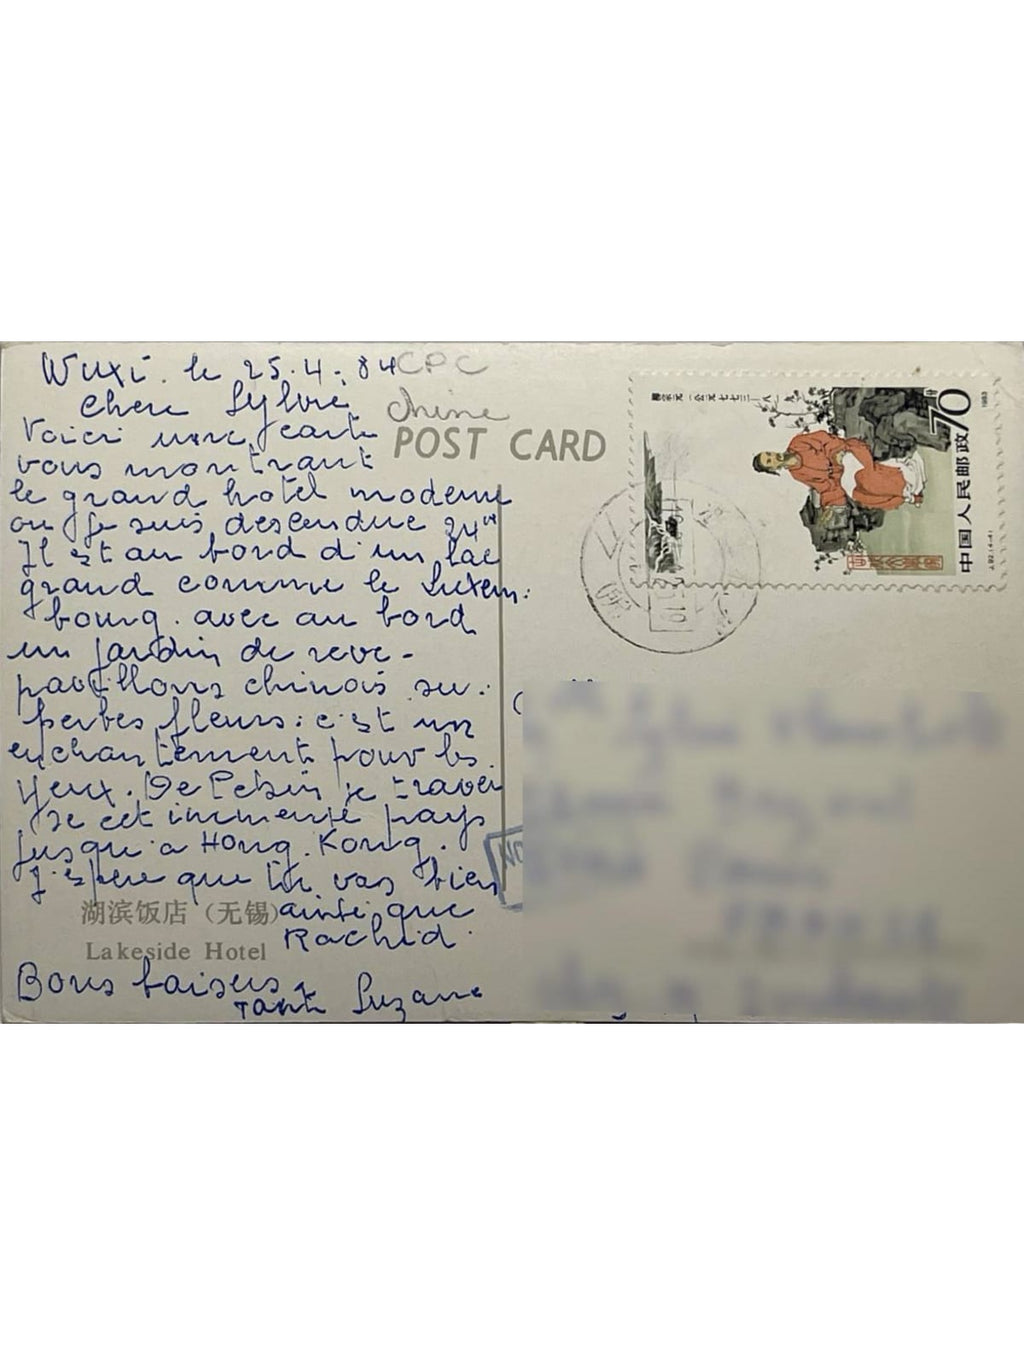 Wuxi. le 25.4.84
CPC
Chine
Chere Sylvie
Voici une carte
vous montrant
le grand hotel moderne
ou je suis descendue
Il est au bord d'un lac
grand comme le Luxem-
bourg. avec au bord
un jardin de reve-
pavillons chinois su-
perbes fleurs: c'est un
enchantement pour les
yeux. De Pekin je traver
se cet immense pays
jusqu'a Hong. Kong.
J'espere que tu vas bien
ainsi que
Rachid.
Bons baisers
Tante Suzane
POST CARD
湖滨饭店（无锡）
Lakeside Hotel
70
1983
中国人民邮政
J.92.(4-4)